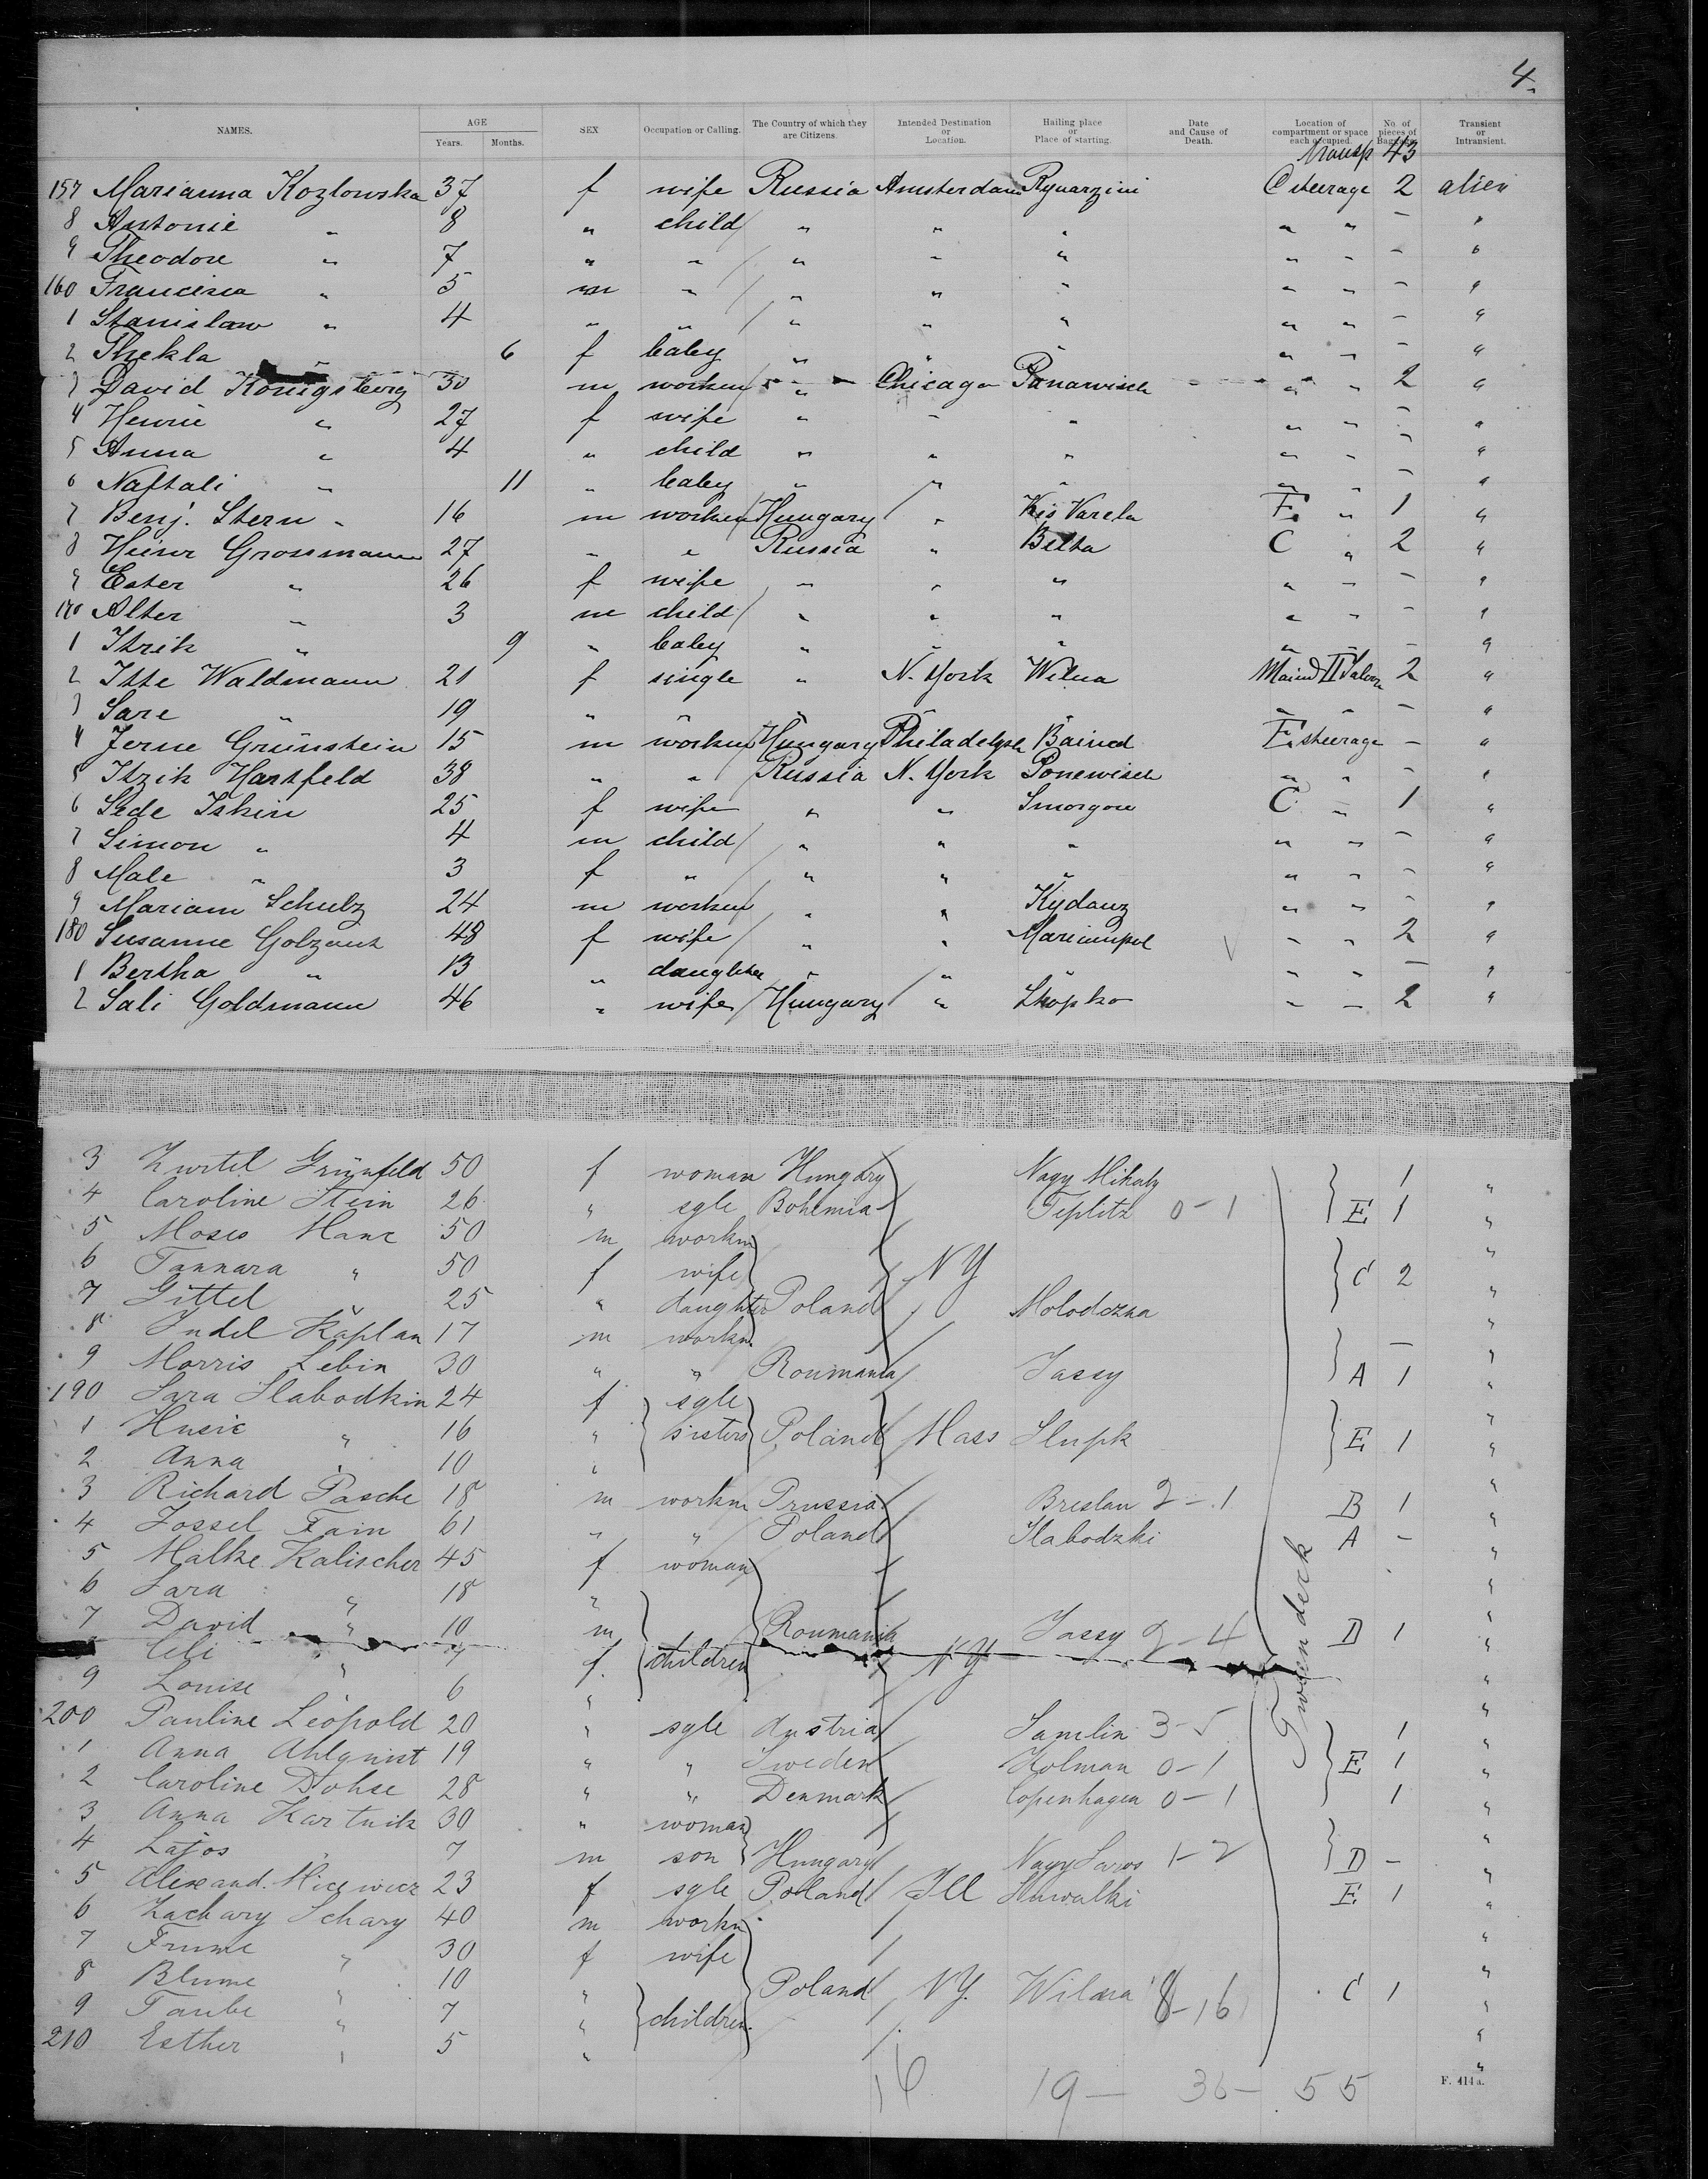 4.
NAMES. AGE Years. Months. SEX Occupation or Calling. The Country of which they are Citizens. Intended Destination or Location. Hailing place or Place of starting. Date and Cause of Death. Location of compartment or space each occupied. No. of pieces of Baggage. Transient or Intransient.
Transp 43
157 Marianna Kozlowska 37 f wife Russia Amsterdam C steerage 2 alien
8 Antonie " 8 " child " " " " " - "
9 Theodore " 7 " " " " " " " - "
160 Francisca " 5 m " " " " " " - "
1 Stanislaw " 4 " " " " " " " - "
2 Thekla " 6 f baby " " " " " - "
3 David Königsberg 30 m workm " Chicago Ponarwisch " " 2 "
4 Henrie " 27 f wife " " " " " - "
5 Anna " 4 " child " " " " " - "
6 Naftali " 11 " baby " " " " " - "
7 Benj. Stern 16 m workm Hungary " Kis Varela E " 1 "
8 Heinr Grossmann 27 " " Russia " Belta C " 2 "
9 Ester " 26 f wife " " " " " - "
170 Alter " 3 m child " " " " " - "
1 Itzik " 9 " baby " " " " " - "
2 Itte Waldmann 21 f single " N. York Wilna Maind II Saloon 2 "
3 Sare " 19 " " " " " " " - "
4 Jerne Grünstein 15 m workm Hungary Philadelph Bained E steerage - "
5 Itzik Hartfeld 38 " " Russia N. York Ponewisch " " - "
6 Sede Iskin 25 f wife " " Smorgon C " 1 "
7 Simon " 4 m child " " " " " - "
8 Male " 3 f " " " " " " - "
9 Mariam Schulz 24 m workm " " Kydanz " " - "
180 Susanne Golzant 48 f wife " " Mariampol " " 2 "
1 Bertha " 13 " daughter " " " " " - "
2 Sali Goldmann 46 " wife Hungary " Skopko " " 2 "
3 Zurtel Grünfeld 50 f woman Hungary Nagy Mihaly 1 "
4 Caroline Stein 26 " sgle Bohemia Teplitz 0-1 E 1 "
5 Moses Hanc 50 m workm "
6 Tannara " 50 f wife N Y C 2 "
7 Gittel " 25 " daughter Poland Molodczna "
8 Judel Kaplan 17 m workm - "
9 Morris Lebin 30 " " Roumania Jassy A 1 "
190 Sara Slabodkin 24 f sgle "
1 Husie " 16 " sisters Poland Mass Slupk E 1 "
2 Anna " 10 " "
3 Richard Pasche 18 m workm Prussia Breslau 2-1 B 1 "
4 Jossel Fain 61 " " Poland Slabodzki A - "
5 Malke Kalischer 45 f woman "
6 Sara " 18 " "
7 David " 10 m Roumania Jassy 2-4 D 1 "
Cili " 7 f children N Y "
9 Louise " 6 " "
200 Pauline Leopold 20 " sgle Austria Samlin 3-5 1 "
1 Anna Ahlqnist 19 " " Sweden Holman 0-1 E 1 "
2 Caroline Dohse 28 " " Denmark Copenhagen 0-1 1 "
3 Anna Kartnik 30 " woman "
4 Lajos " 7 m son Hungary Nagy Saros 1-2 D - "
5 Alexand. Micewicz 23 f sgle Poland Ill Suwalki E 1 "
6 Zachary Schary 40 m workm "
7 Frume " 30 f wife "
8 Blume " 10 " Poland N Y. Wilna 8-16 C 1 "
9 Taube " 7 " children "
210 Esther " 5 " "
Tweendeck
16 19- 36- 55
F. 414a.